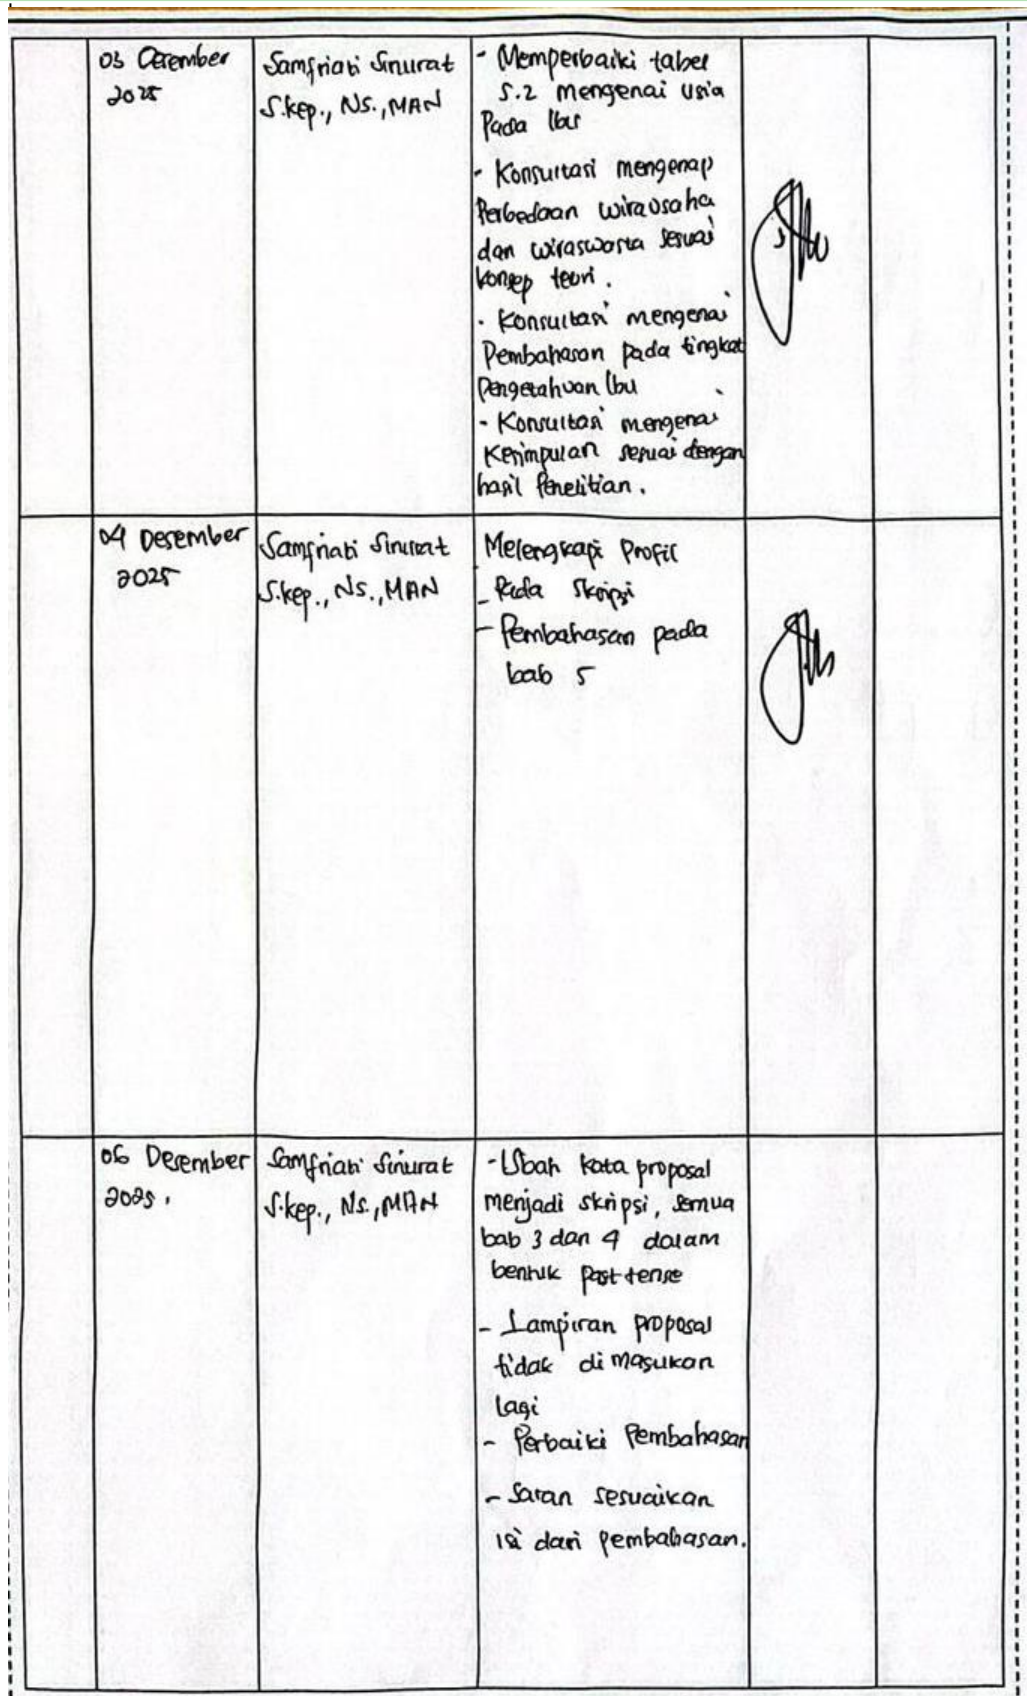 03 Desember
2025
Samfriati Sinurat
S.kep., NS., MAN
- Memperbaiki tabel
5.2 mengenai usia
Pada Ibu
- Konsultasi mengenai
Perbedaan wirausaha
dan wiraswasta sesuai
konsep teori.
- Konsultasi mengenai
Pembahasan pada tingkat
Pengetahuan Ibu
- Konsultasi mengenai
Kesimpulan sesuai dengan
hasil Penelitian.
04 Desember
2025
Samfriati Sinurat
S.kep., NS., MAN
Melengkapi Profil
- Pada Skripsi
- Pembahasan pada
bab 5
06 Desember
2025.
Samfriati Sinurat
S.kep., NS., MAN
- Ubah kata proposal
menjadi skripsi, semua
bab 3 dan 4 dalam
bentuk Past tense
- Lampiran proposal
tidak di masukan
Lagi
- Perbaiki Pembahasan
- Saran sesuaikan
isi dari pembahasan.